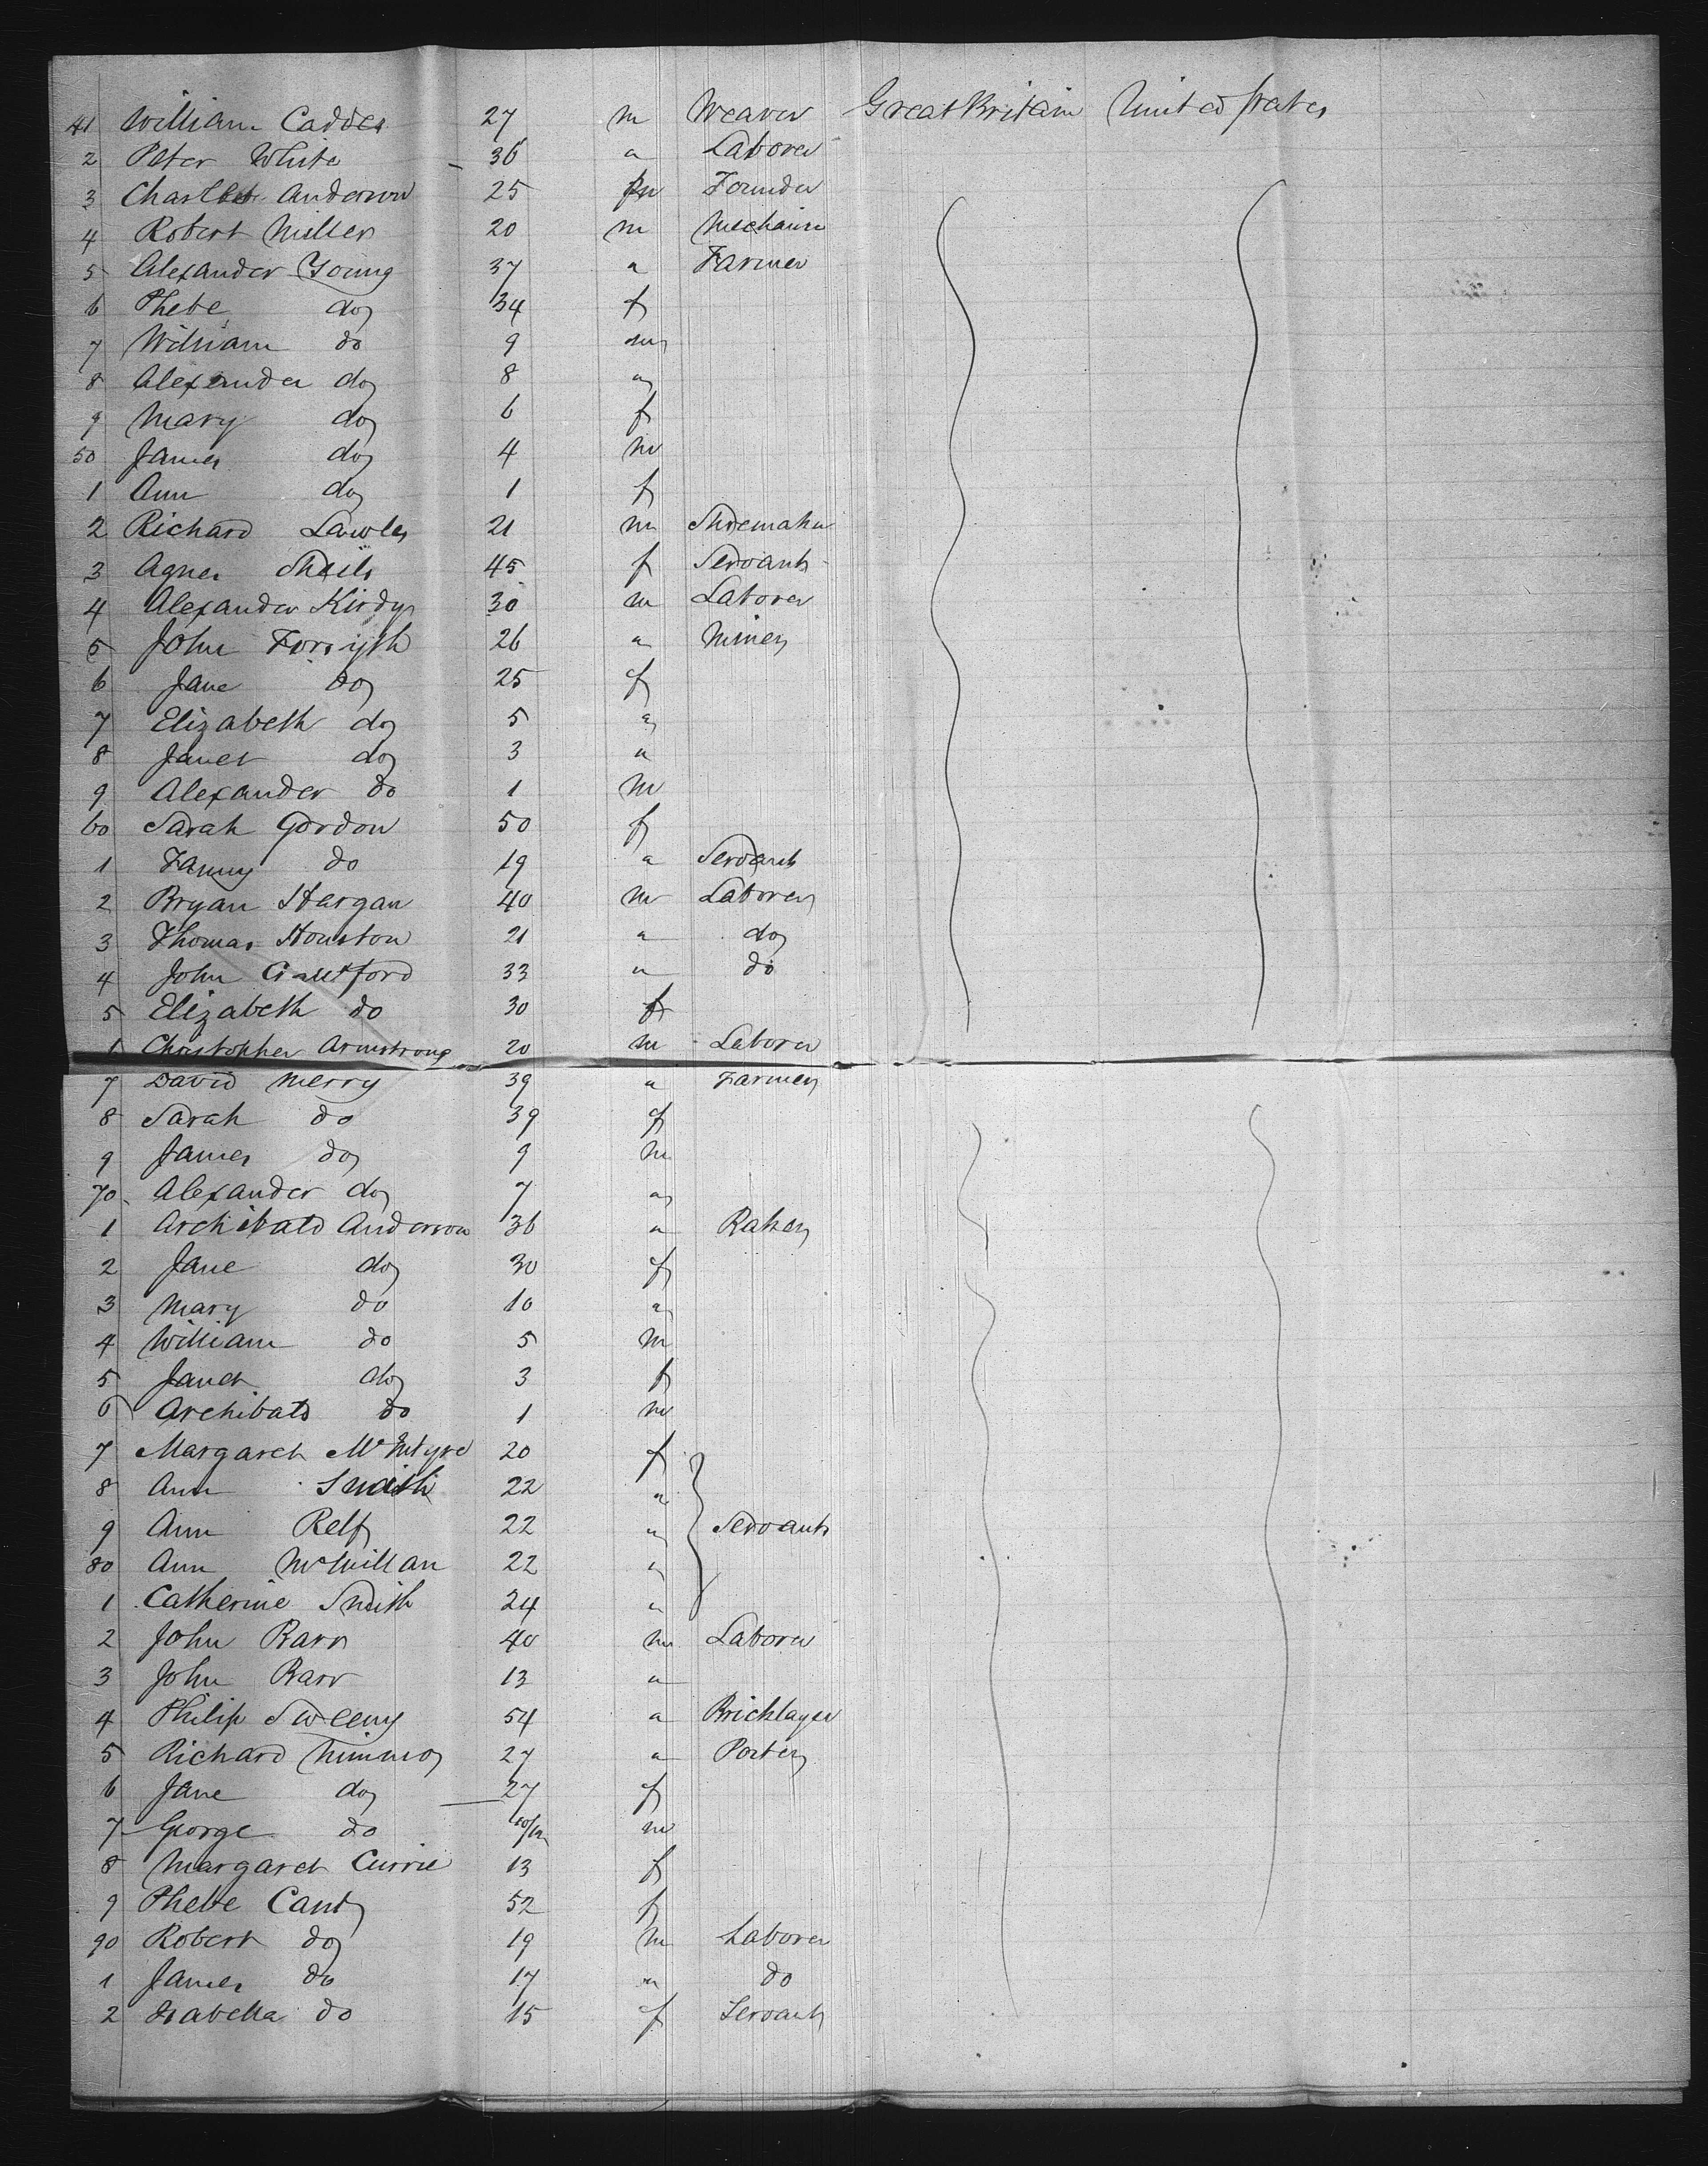 41 William Cadder 27 m Weaver Great Britain United States
2 Peter White 36 " Laborer
3 Anderson 25 m Founder
4 Robert Miller 20 m
5 Alexander Young 37 " Farmer
6 Phebe do 34 f
7 William do 9 m
8 Alexander do 8 "
9 Mary do 6 f
50 James do 4 m
1 Ann do 1 f
2 Richard Lawles 21 m Shoemaker
3 Agnes Sheils 45 f Servant
4 Alexander Kirdy 30 m Laborer
5 John Forsyth 26 " Miner
6 Jane do 25 f
7 Elizabeth do 5 "
8 Janet do 3 "
9 Alexander do 1 m
60 Sarah Gordon 50 f
1 Fanny do 19 " Servant
2 Bryan Hargan 40 m Laborer
3 Thomas Houston 21 " do
4 John Crawford 33 " do
5 Elizabeth do 30 f
Christopher Armstrong 20 m Laborer
7 David Merry 39 " Farmer
8 Sarah do 39 f
9 James do 9 m
70 Alexander do 7 "
1 Archibald Anderson 36 " Baker
2 Jane do 30 f
3 Mary do 10 "
4 William do 5 m
5 Janet do 3 f
6 Archibald do 1 m
7 Margaret McIntyre 20 f
8 Ann Smith 22 "
9 Ann Relf 22 " Servants
80 Ann McMillan 22 "
1 Catherine Smith 24 "
2 John Barr 40 m Laborer
3 John Barr 13 "
4 Philip Sweeny 54 " Bricklayer
5 Richard Nimmo 27 " Porter
6 Jane do 27 f
7 George do 10/12 m
8 Margaret Currie 13 f
9 Phebe Canty 52 f
90 Robert do 19 m Laborer
1 James do 17 " do
2 Isabella do 15 f Servant